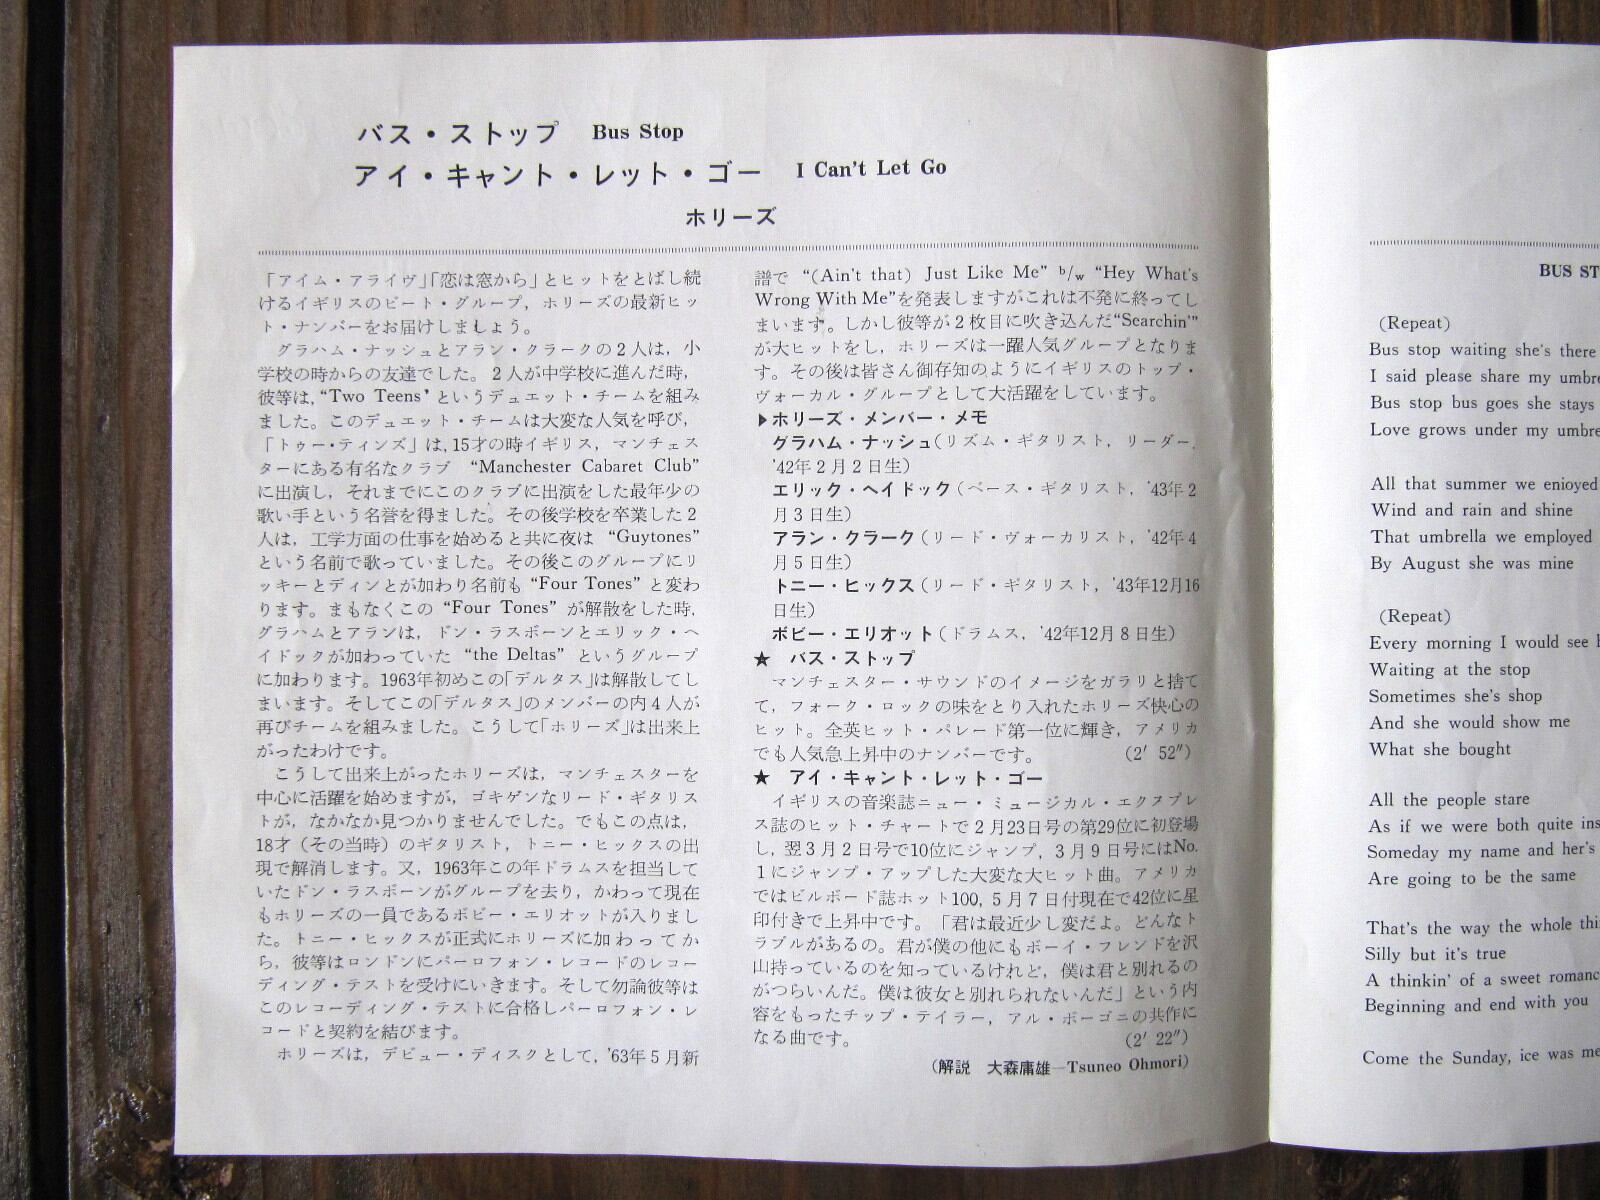 バス・ストップ　Bus Stop
アイ・キャント・レット・ゴー　I Can't Let Go
ホリーズ
「アイム・アライヴ」「恋は窓から」とヒットをとばし続
けるイギリスのビート・グループ，ホリーズの最新ヒッ
ト・ナンバーをお届けしましょう。
グラハム・ナッシュとアラン・クラークの２人は，小
学校の時からの友達でした。２人が中学校に進んだ時，
彼等は，“Two Teens’というデュエット・チームを組み
ました。このデュエット・チームは大変な人気を呼び，
「トゥー・ティンズ」は，15才の時イギリス，マンチェス
ターにある有名なクラブ　“Manchester Cabaret Club”
に出演し，それまでにこのクラブに出演をした最年少の
歌い手という名誉を得ました。その後学校を卒業した２
人は，工学方面の仕事を始めると共に夜は　“Guytones”
という名前で歌っていました。その後このグループにリ
ッキーとディンとが加わり名前も “Four Tones” と変わ
ります。まもなくこの “Four Tones” が解散をした時，
グラハムとアランは，ドン・ラスボーンとエリック・ヘ
イドックが加わっていた “the Deltas” というグループ
に加わります。1963年初めこの「デルタス」は解散してし
まいます。そしてこの「デルタス」のメンバーの内４人が
再びチームを組みました。こうして「ホリーズ」は出来上
がったわけです。
こうして出来上がったホリーズは，マンチェスターを
中心に活躍を始めますが，ゴキゲンなリード・ギタリス
トが，なかなか見つかりませんでした。でもこの点は，
18才（その当時）のギタリスト，トニー・ヒックスの出
現で解消します。又，1963年この年ドラムスを担当して
いたドン・ラスボーンがグループを去り，かわって現在
もホリーズの一員であるボビー・エリオットが入りまし
た。トニー・ヒックスが正式にホリーズに加わってか
ら，彼等はロンドンにパーロフォン・レコードのレコー
ディング・テストを受けにいきます。そして勿論彼等は
このレコーディング・テストに合格しパーロフォン・レ
コードと契約を結びます。
ホリーズは，デビュー・ディスクとして，’63年５月新
譜で “(Ain't that) Just Like Me” b/w “Hey What's
Wrong With Me”を発表しますがこれは不発に終ってし
まいます。しかし彼等が２枚目に吹き込んだ“Searchin'”
が大ヒットをし，ホリーズは一躍人気グループとなりま
す。その後は皆さん御存知のようにイギリスのトップ・
ヴォーカル・グループとして大活躍をしています。
▶ホリーズ・メンバー・メモ
グラハム・ナッシュ（リズム・ギタリスト，リーダー，
’42年２月２日生）
エリック・ヘイドック（ベース・ギタリスト，’43年２
月３日生）
アラン・クラーク（リード・ヴォーカリスト，’42年４
月５日生）
トニー・ヒックス（リード・ギタリスト，’43年12月16
日生）
ボビー・エリオット（ドラムス，’42年12月８日生）
★　バス・ストップ
マンチェスター・サウンドのイメージをガラリと捨て
て，フォーク・ロックの味をとり入れたホリーズ快心の
ヒット。全英ヒット・パレード第一位に輝き，アメリカ
でも人気急上昇中のナンバーです。　（2′ 52″）
★　アイ・キャント・レット・ゴー
イギリスの音楽誌ニュー・ミュージカル・エクスプレ
ス誌のヒット・チャートで２月23日号の第29位に初登場
し，翌３月２日号で10位にジャンプ，３月９日号にはNo.
１にジャンプ・アップした大変な大ヒット曲。アメリカ
ではビルボード誌ホット100，５月７日付現在で42位に星
印付きで上昇中です。「君は最近少し変だよ。どんなト
ラブルがあるの。君が僕の他にもボーイ・フレンドを沢
山持っているのを知っているけれど，僕は君と別れるの
がつらいんだ。僕は彼女と別れられないんだ」という内
容をもったチップ・テイラー，アル・ボーゴニの共作に
なる曲です。　（2′ 22″）
（解説　大森庸雄—Tsuneo Ohmori）
BUS ST
(Repeat)
Bus stop waiting she's there
I said please share my umbre
Bus stop bus goes she stays
Love grows under my umbre
All that summer we enioyed
Wind and rain and shine
That umbrella we employed
By August she was mine
(Repeat)
Every morning I would see
Waiting at the stop
Sometimes she's shop
And she would show me
What she bought
All the people stare
As if we were both quite ins
Someday my name and her's
Are going to be the same
That's the way the whole thi
Silly but it's true
A thinkin' of a sweet romanc
Beginning and end with you
Come the Sunday, ice was me